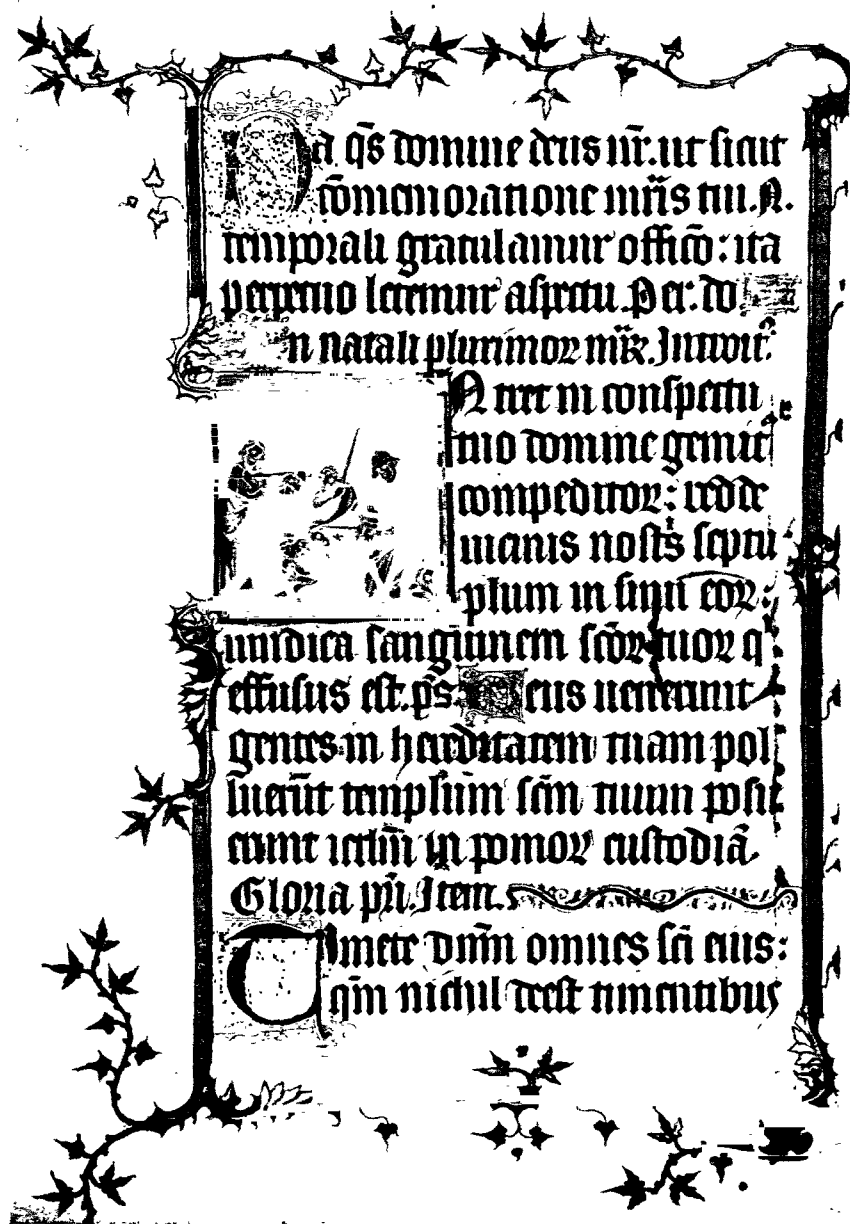 Da q̄s domine deus nr̄. ut sicut
cōmemoratione mr̄is tui. N.
temporali gratulamur officō: ita
perpetuo letemur aspectu. Per. do
In natali plurimoꝝ mr̄ꝝ. Introit᷒.
INtret in conspectu
tuo domine gemit᷒
compeditoꝝ: redde
uicinis nostr̄s septu
plum in sinu eoꝝ:
uindica sanguinem sc̄oꝝ tuoꝝ q
effusus est. p̄s. Deus uenerunt
gentes in hereditatem tuam pol
luerūt templum sc̄m tuum posu
erunt ierl̄m in pomoꝝ custodiā.
Gloria pr̄i. Item.
Timete dn̄m omnes sc̄i eius:
qm̄ nichil deest timentibus